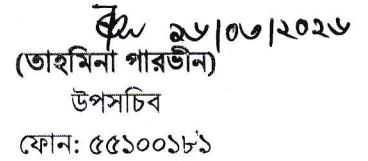 ২৬/০৩/২০২৬
(তাহমিনা পারভীন)
উপসচিব
ফোন: ৫৫১০০১৮১